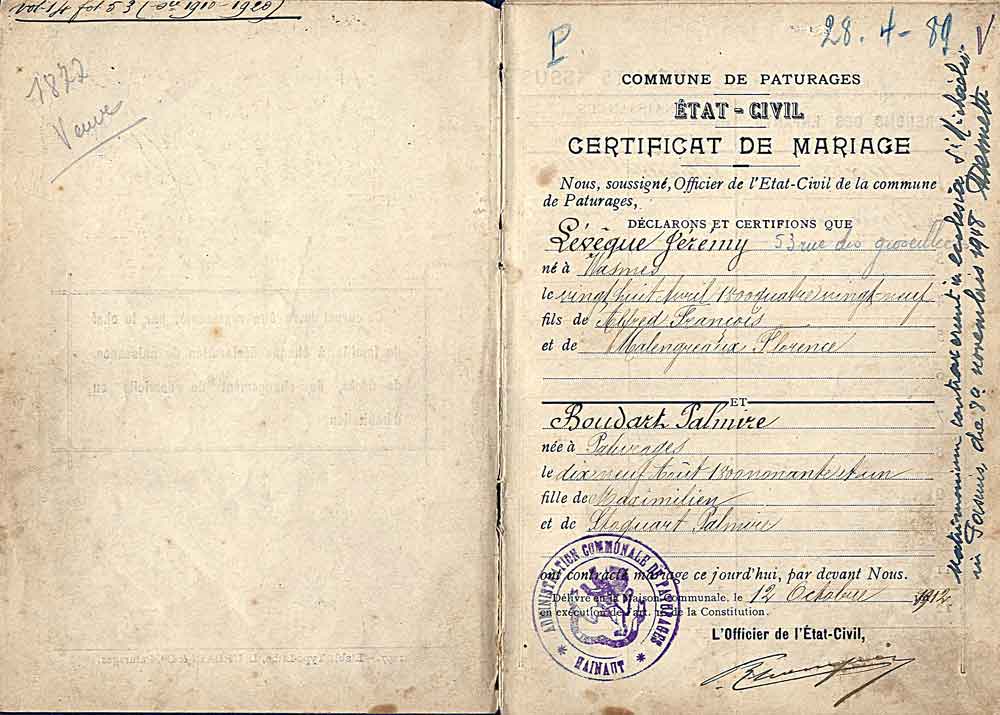 vol 14 fol 53 (1910-1920)
1877
Veuve
P
28.4-89
COMMUNE DE PATURAGES
ÉTAT-CIVIL
CERTIFICAT DE MARIAGE
Nous, soussigné, Officier de l'Etat-Civil de la commune
de Paturages,
DÉCLARONS ET CERTIFIONS QUE
Lévêque Jérémy 53 rue des groseilles
né à Wasmes
le vingt huit avril 1800 quatre vingt-neuf
fils de Alfred François
et de Malengreaux Florence
ET
Boudart Palmire
née à Paturages
le dix neuf Août 1800 nonante et un
fille de Maximilien
et de Stoquart Palmire
ont contracté mariage ce jourd'hui, par devant Nous.
Délivré en la Maison Communale, le 12 Octobre 1912
en exécution de l'art. de la Constitution.
L'Officier de l'État-Civil,
ADMINISTRATION COMMUNALE DE PATURAGES
HAINAUT
Matrimonium contraxerunt in ecclesia St Michaelis
in die 29 novembris 1918